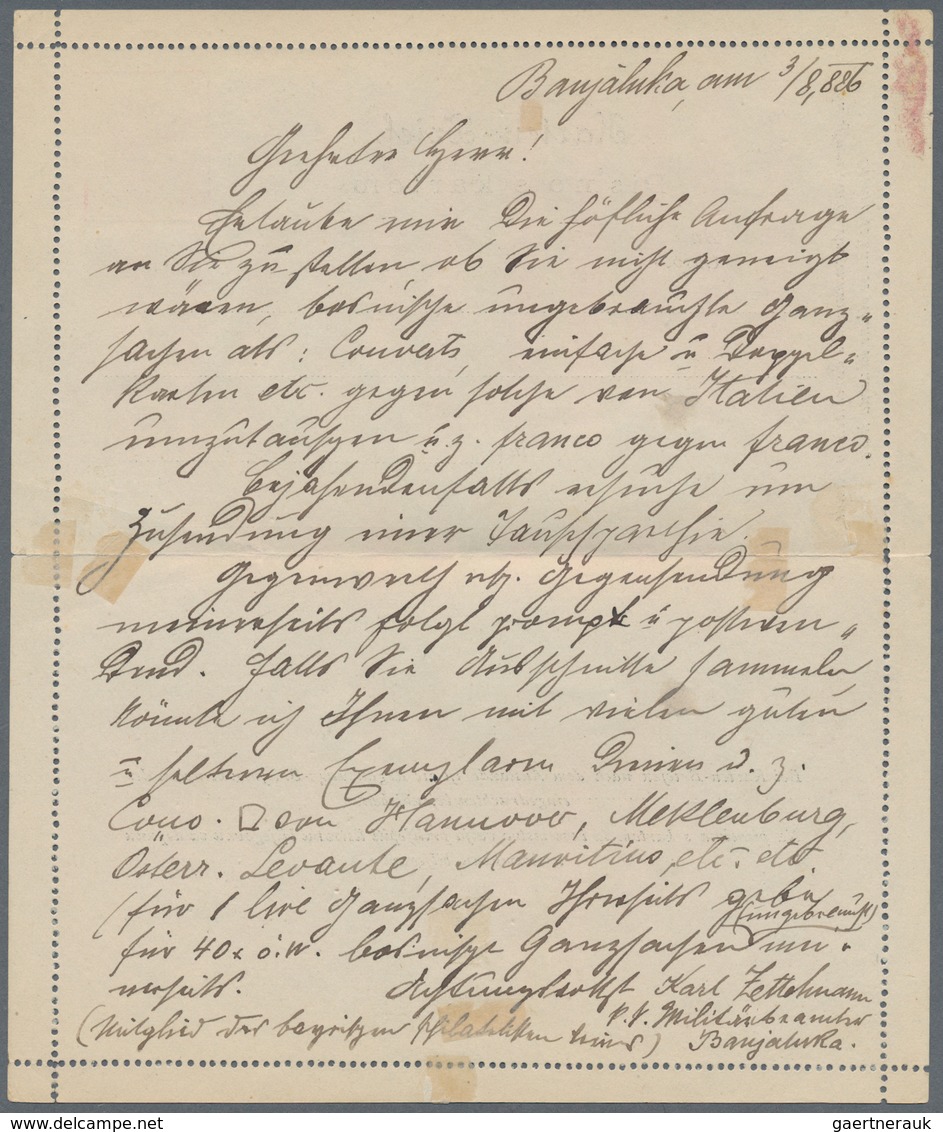 Banjaluka, am 3/8, 886
Geehrter Herr!
Erlaube mir die höfliche Anfrage
an Sie zu stellen, ob Sie nicht geneigt
wären, bosnische ungebrauchte Ganz„
sachen als: Couverts, einfache u Doppel„
karten etc. gegen solche von Italien
umzutauschen u. z. franco gegen franco.
Bejahendenfalls ersuche um
Zusendung einer Tauschparthie.
Gegenwerth rsp. Gegensendung
meinerseits folgt prompt u postwen„
dend. Falls Sie Ausschnitte sammeln
könnte ich Ihnen mit vielen guten
u seltenen Exemplaren dienen u. z.
Couv. von Hannover, Meklenburg,
Österr. Levante, Mauritius, etc. etc
(für 1 lire Ganzsachen Ihrerseits gebe
(ungebraucht)
für 40x ö. W. bosnische Ganzsachen mei-
nerseits. Achtungsvollst Karl Zettelmann
k. k. Militärbeamter
(Mitglied des bayrischen Philatelisten Vereins) Banjaluka.
gaertnerauk